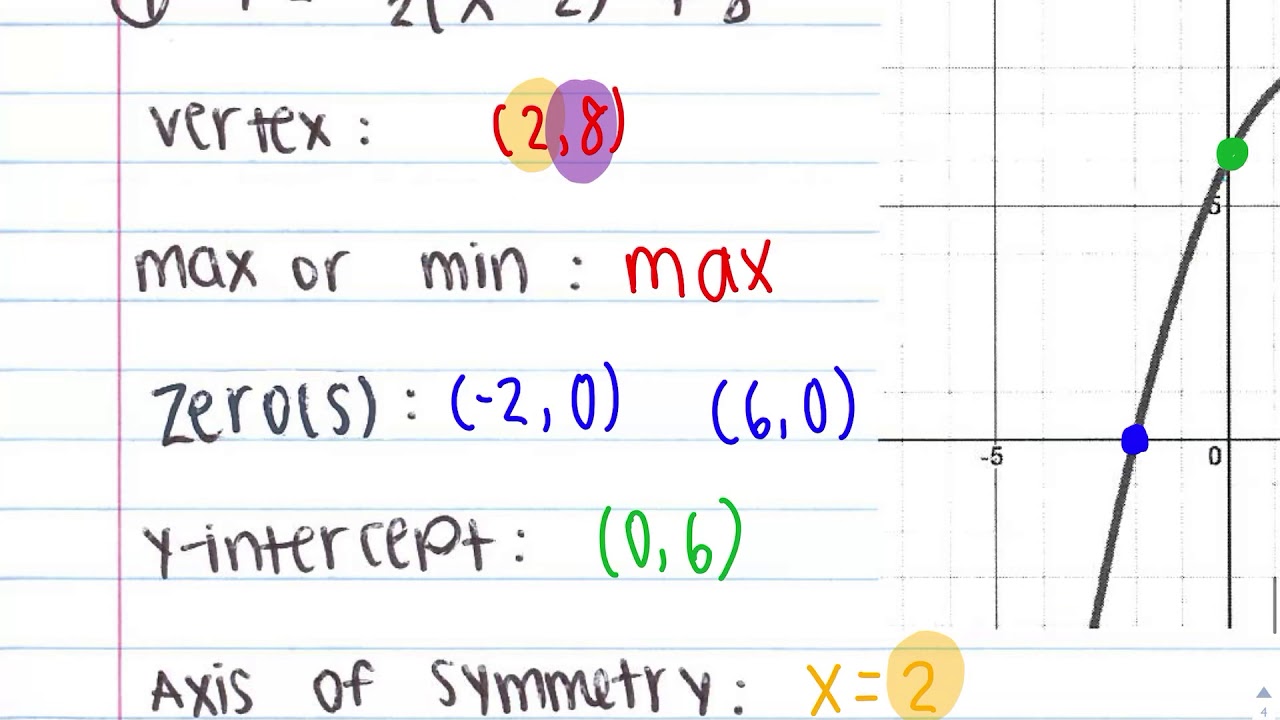 vertex: (2,8)
max or min: max
zero(s): (-2,0) (6,0)
y-intercept: (0,6)
Axis of symmetry: x=2
5
-5 0
4